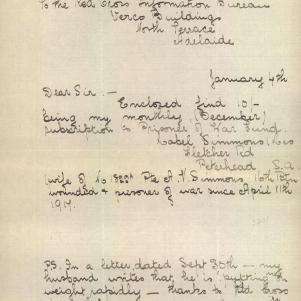 To the Red Cross Information Bureau
Verco Buildings
North Terrace
Adelaide
January 4th
Dear Sir :- Enclosed find 10/-
being my monthly (December)
subscription to Prisoner of War Fund.
Mabel Simmons (Mrs
Fletcher Rd
Peterhead S.A
(wife of No Pte A V Simmons 16th Bttn
wounded & prisoner of war since April 11th
1917.
P.S. In a letter dated Sept 30th - my
husband writes that he is "putting on
weight rapidly - thanks to Red Cross